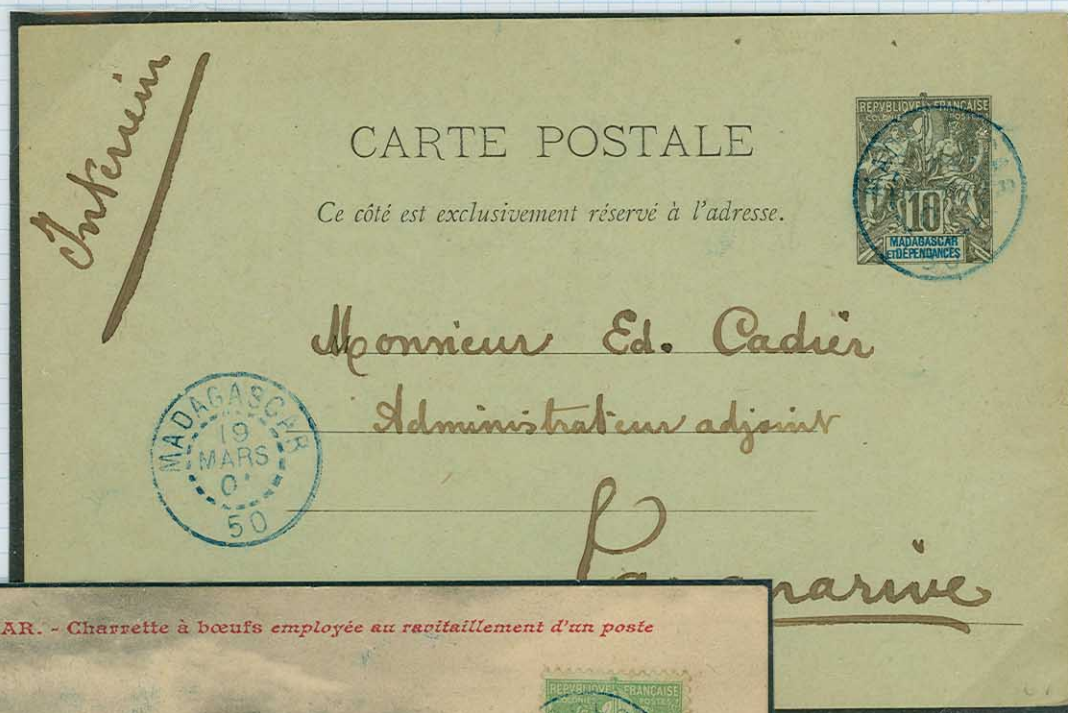 Intérieur
CARTE POSTALE
Ce côté est exclusivement réservé à l'adresse.
REPVBLIQVE FRANÇAISE
COLONIES POSTES
10
MADAGASCAR
ET DÉPENDANCES
Monsieur Ed. Cadier
Administrateur adjoint
MADAGASCAR
19
MARS
50
AR. - Charrette à bœufs employée au ravitaillement d'un poste
REPVBLIQVE FRANÇAISE